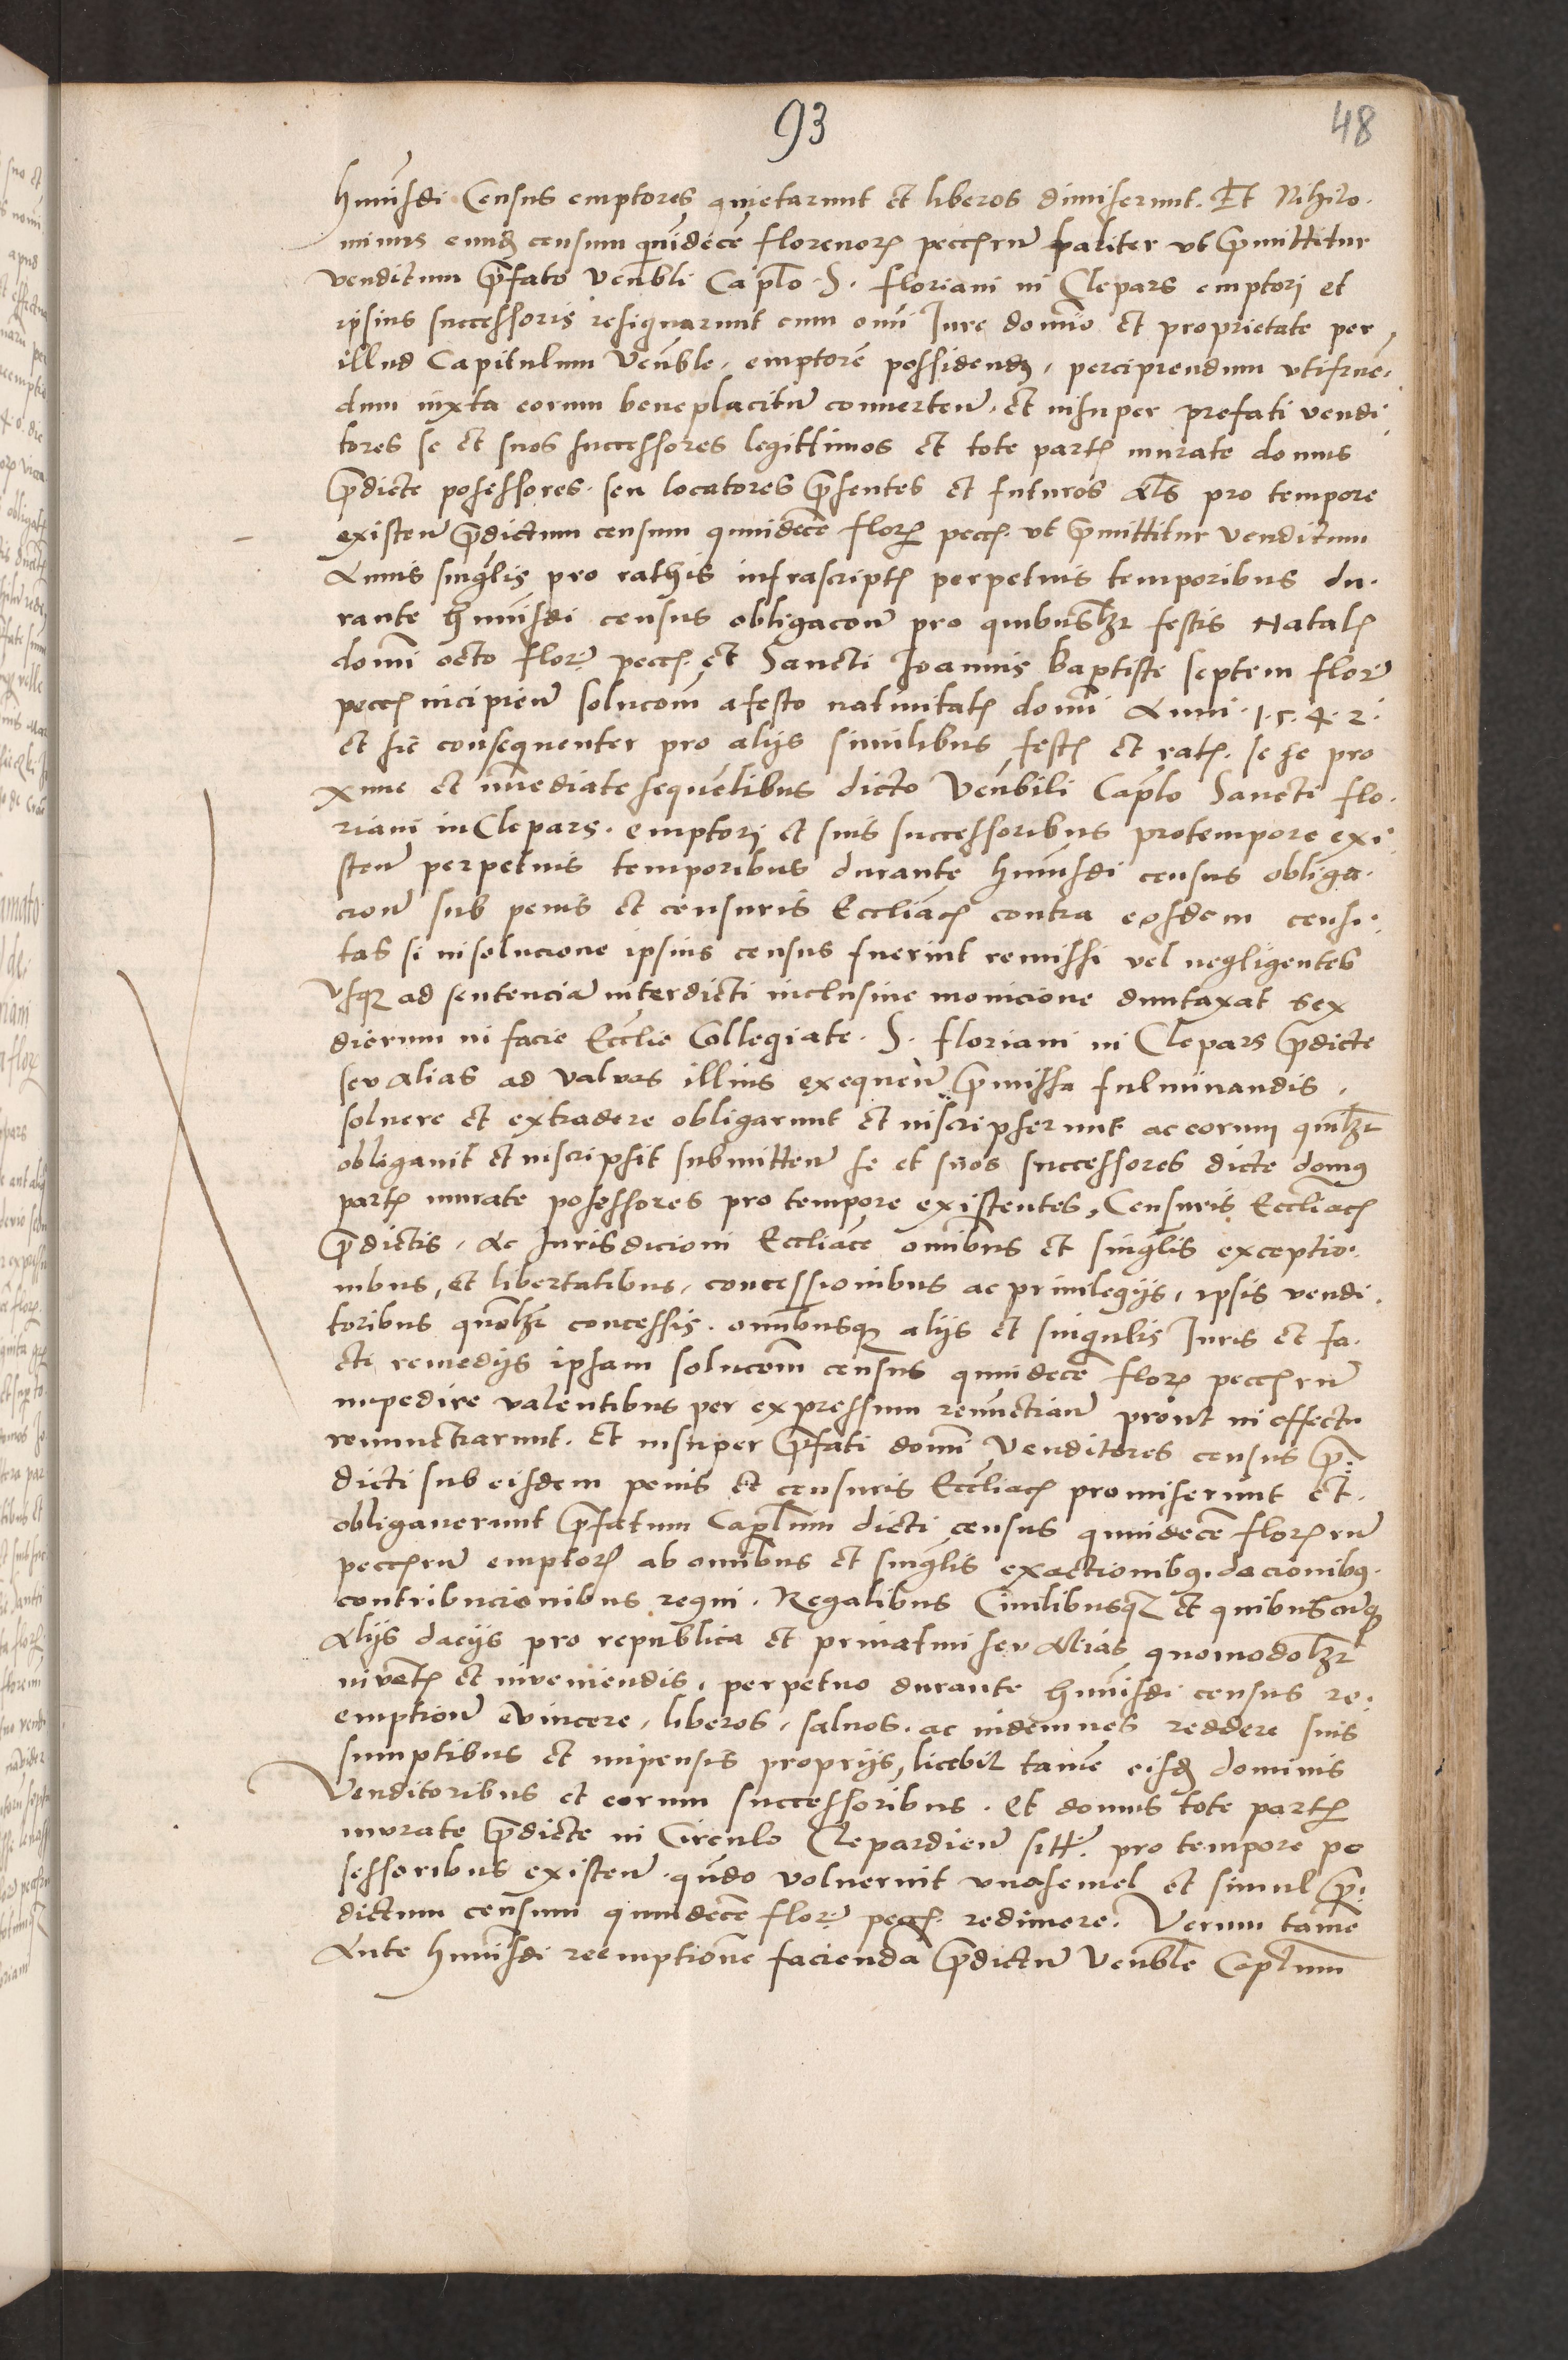 93
48
huiusdi Census emptores quietarunt et liberos dimiserunt. Et Nihilo.
minus eund censum quindece florenor peccrum pariter ut pmittitur
venditum pfato venbli Caplo S. floriani in Clepars emptori et
ipsius successoris resignarunt cum omi Jure domio et proprietate per
illud Capitulum Venble, emptore possidend, percipiendum utifrue.
dum iuxta eorum beneplacitu conuerten. et insuper prefati vendi
tores se et suos successores legittimos et tote part murate domus
pdicte posessores. seu locatores psentes et futuros als pro tempore
existen pdictum censum quindece flor pecc. ut pmittitur venditum
Annis singlis pro rathis infrascript perpetuis temporibus du.
rante huiusdi census obligacon pro quibuslzt festis Natal
domi octo flor pecc. et Sancti Joannis baptiste septem flor
pecc incipien solucom a festo natiuitat domi Anni .1.5.4.2.
et sic consequenter pro alys similibus fest et rat. se se pro
xime et immediate sequentibus dicto Venbili Caplo Sancti flo.
riani in Clepars. emptori et suis successoribus protempore exi
sten perpetuis temporibus durante huiusdi census obliga.
cion sub penis et censuris Eccliac contra eosdem censi.
tas si in solucione ipsius census fuerint remissi vel negligentes
usq ad sentencia interdicti inclusiue monicione duntaxat sex
dierum in facie Ecclie Collegiate. S. floriani in Clepars pdicte
seu alias ad valuas illius exequen pmissa fulminandis,
soluere et extradere obligarunt et inscripserunt ac eorum quilzt
obligauit et inscripsit submitten se et suos successores dicte domus
part murate posessores pro tempore existentes, Censuris Eccliac
pdictis, Ac Jurisdicioni Eccliace omibus et singlis exceptio.
nibus, et libertatibus, concessionibus ac priuilegijs, ipsis vendi.
toribus quolzt concessis. omibusq alijs et singulis Juris et fa.
cti remedijs ipsam solucom census quindece flor peccrum
impedire valentibus per expressum renunctian prout in effectu
renunctiarunt. et insuper pfati domi Venditores census p
dicti sub eisdem penis et censuris Eccliac promiserunt et.
obligauerunt pfatum Caplum dicti census quindece florrum
peccrum emptor ab omibus et singlis exactionibus. dacionibus.
contribucionibus regni. Regalibus Ciuilibusq et quibuscunq
Alijs dacijs pro republica et priuatim seu Alias quomodolzt
inuent et inueniendis, perpetuo durante huiusdi census re.
emption euincere, liberos, saluos. ac indemnes reddere suis
sumptibus et impensis proprijs, licebit tame eisd dominis
Venditoribus et eorum successoribus. Et domus tote part
murate pdicte in Circulo Clepardien sitt. pro tempore po
sessoribus existen. qndo voluerint unasemel et simul p.
dictum censum quindece flor pecc. redimere. Verum tame
Ante huiusdi reemptione facienda pdictu Venble Caplum